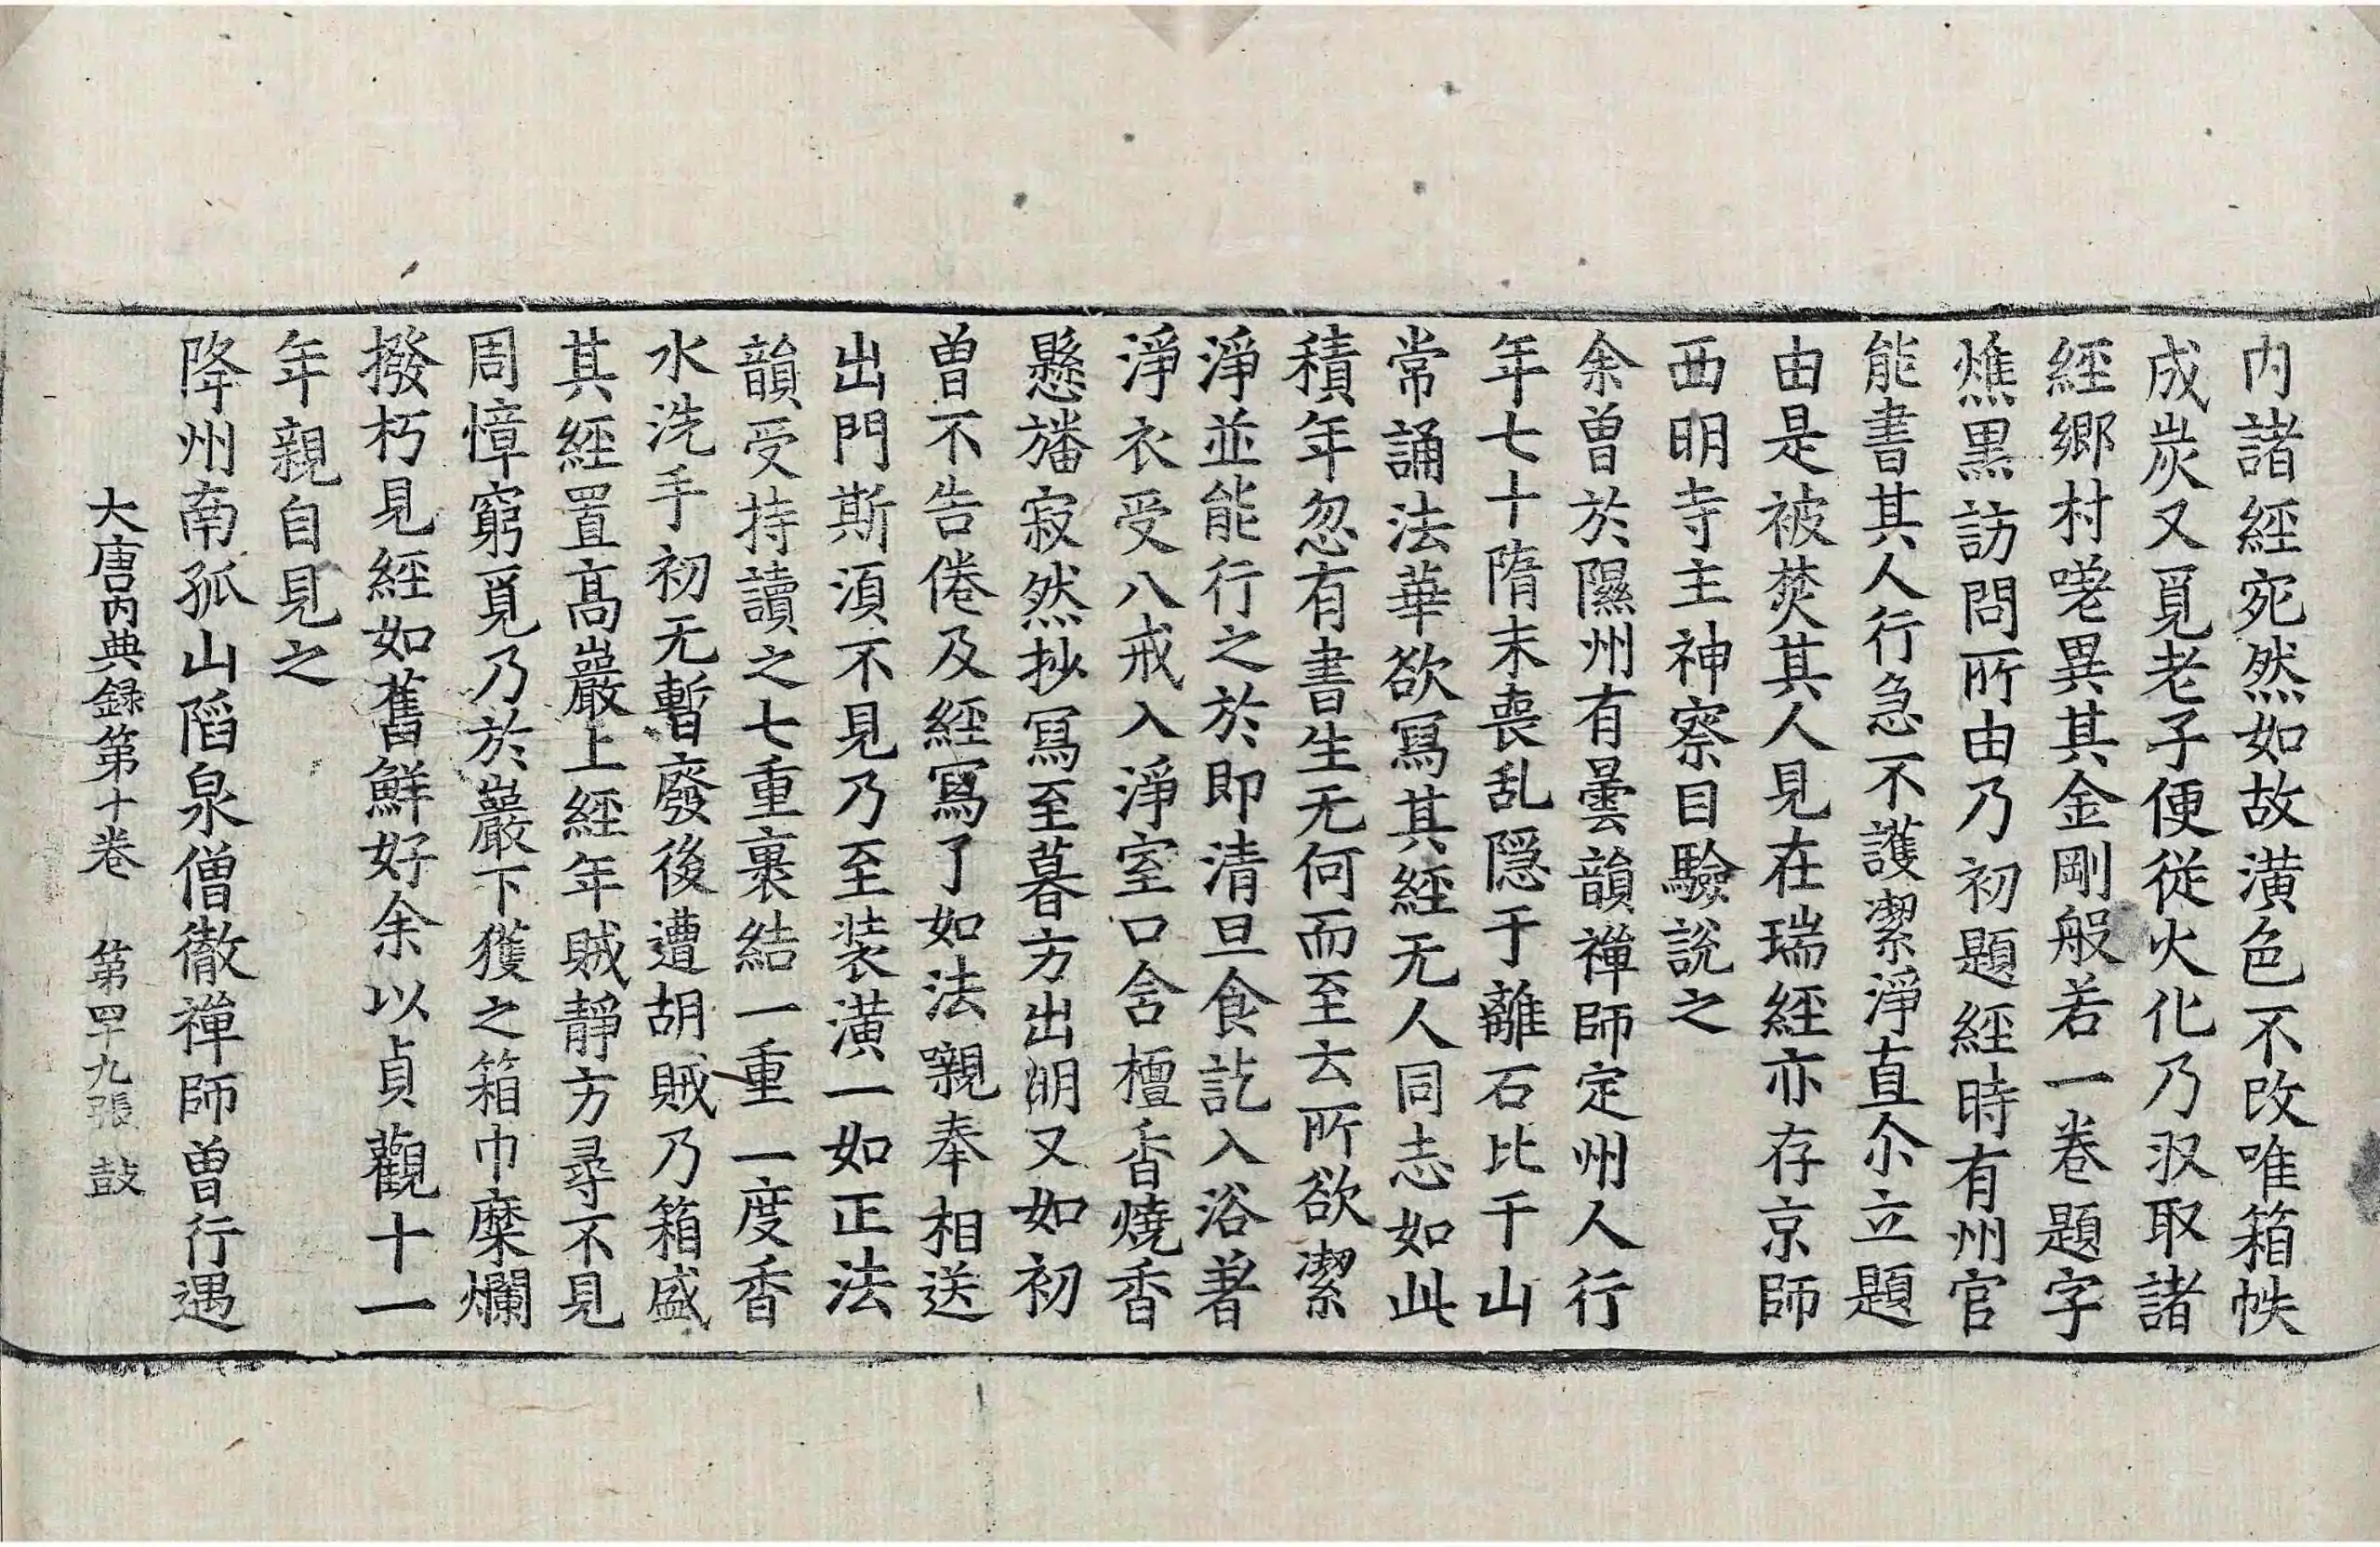 内諸經宛然如故潢色不改唯箱帙
成炭又覓老子便從火化乃収取諸
經鄉村嗟異其金剛般若一卷題字
燋黑訪問所由乃初題經時有州官
能書其人行急不護潔淨直尒立題
由是被焚其人見在瑞經亦存京師
西明寺主神察目驗說之
余曾於隰州有曇韻禪師定州人行
年七十隋末喪乱隠于離石比干山
常誦法華欲寫其經无人同志如此
積年忽有書生无何而至云所欲潔
淨並能行之於即清旦食訖入浴著
淨衣受八戒入淨室口含檀香燒香
懸旛寂然抄寫至暮方出明又如初
曾不告倦及經寫了如法嚫奉相送
出門斯須不見乃至裝潢一如正法
韻受持讀之七重裹結一重一度香
水洗手初无暫廢後遭胡賊乃箱盛
其經置高巖上經年賊靜方尋不見
周慞窮覓乃於巖下獲之箱巾糜爛
撥朽見經如舊鮮好余以貞觀十一
年親自見之
降州南孤山陷泉僧徹禪師曾行遇
大唐内典録第十卷　第四十九張　鼓